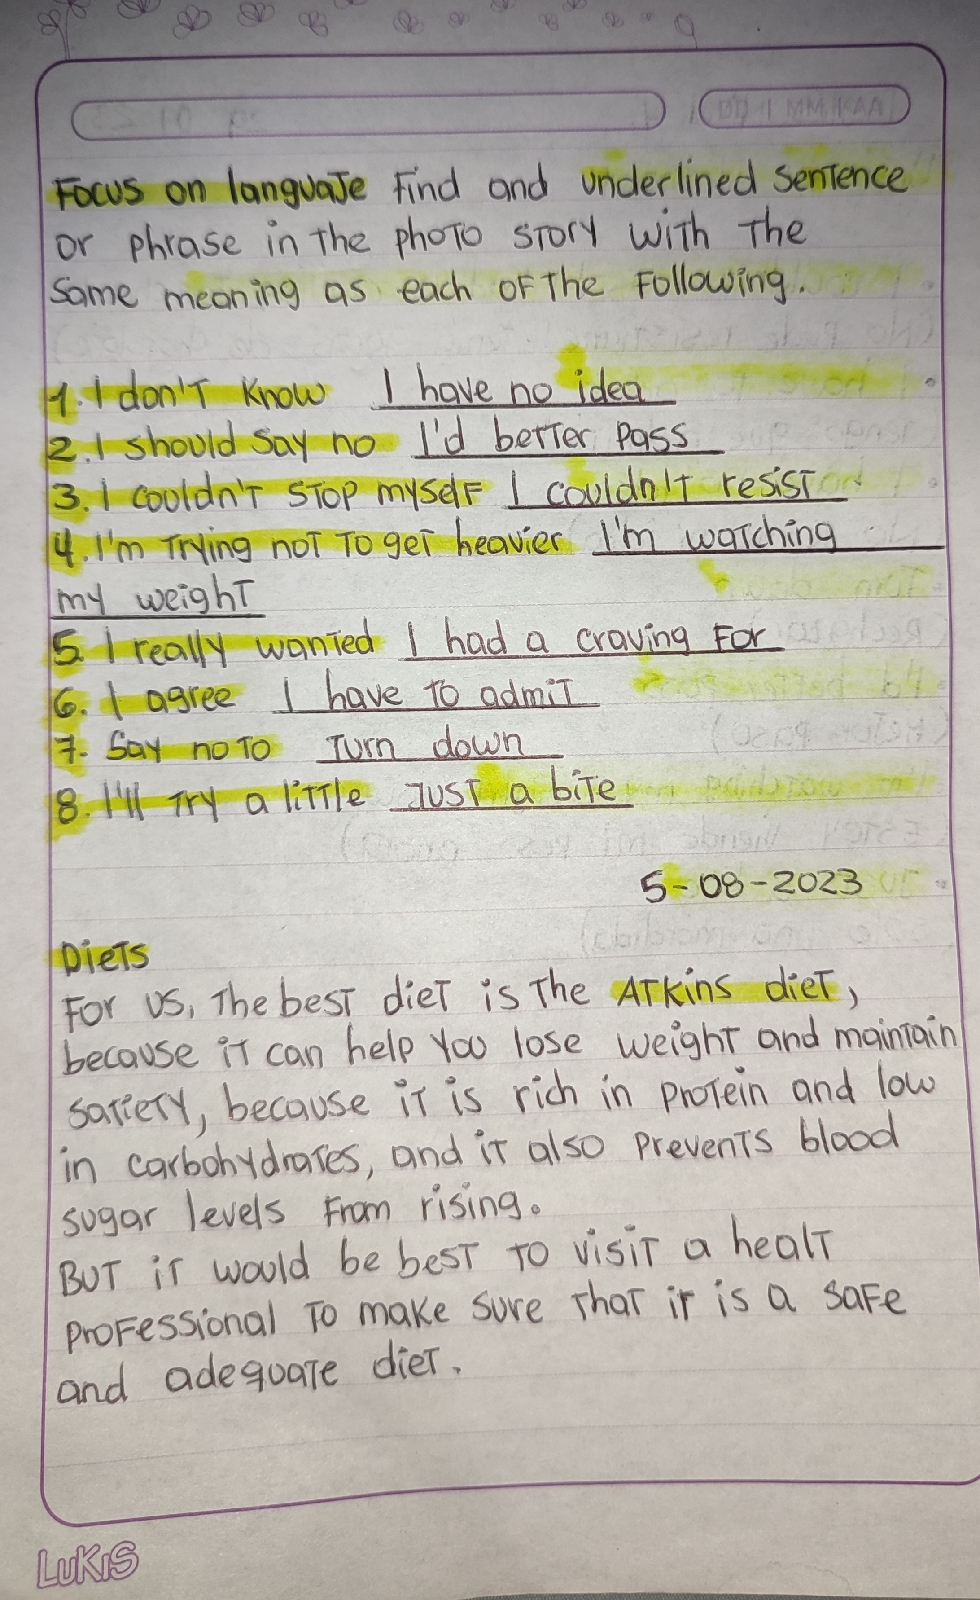 Focus on languaje Find and underlined sentence
or phrase in the photo story with the
same meaning as each of the following.
1. I don't know I have no idea
2. I should say no I'd better pass
3. I couldn't stop myself I couldn't resist
4. I'm trying not to get heavier I'm watching
my weight
5. I really wanted I had a craving for
6. I agree I have to admit
7. Say no to Turn down
8. I'll try a little Just a bite
5-08-2023
Diets
For us, the best diet is the Atkins diet,
because it can help you lose weight and maintain
satiety, because it is rich in protein and low
in carbohydrates, and it also prevents blood
sugar levels from rising.
But it would be best to visit a healt
professional to make sure that it is a safe
and adequate diet.
LUKIS